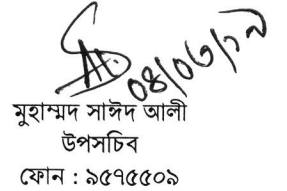 ০৪/০৩/১৯
মুহাম্মদ সাঈদ আলী
উপসচিব
ফোন : ৯৫৭৫৫০৯